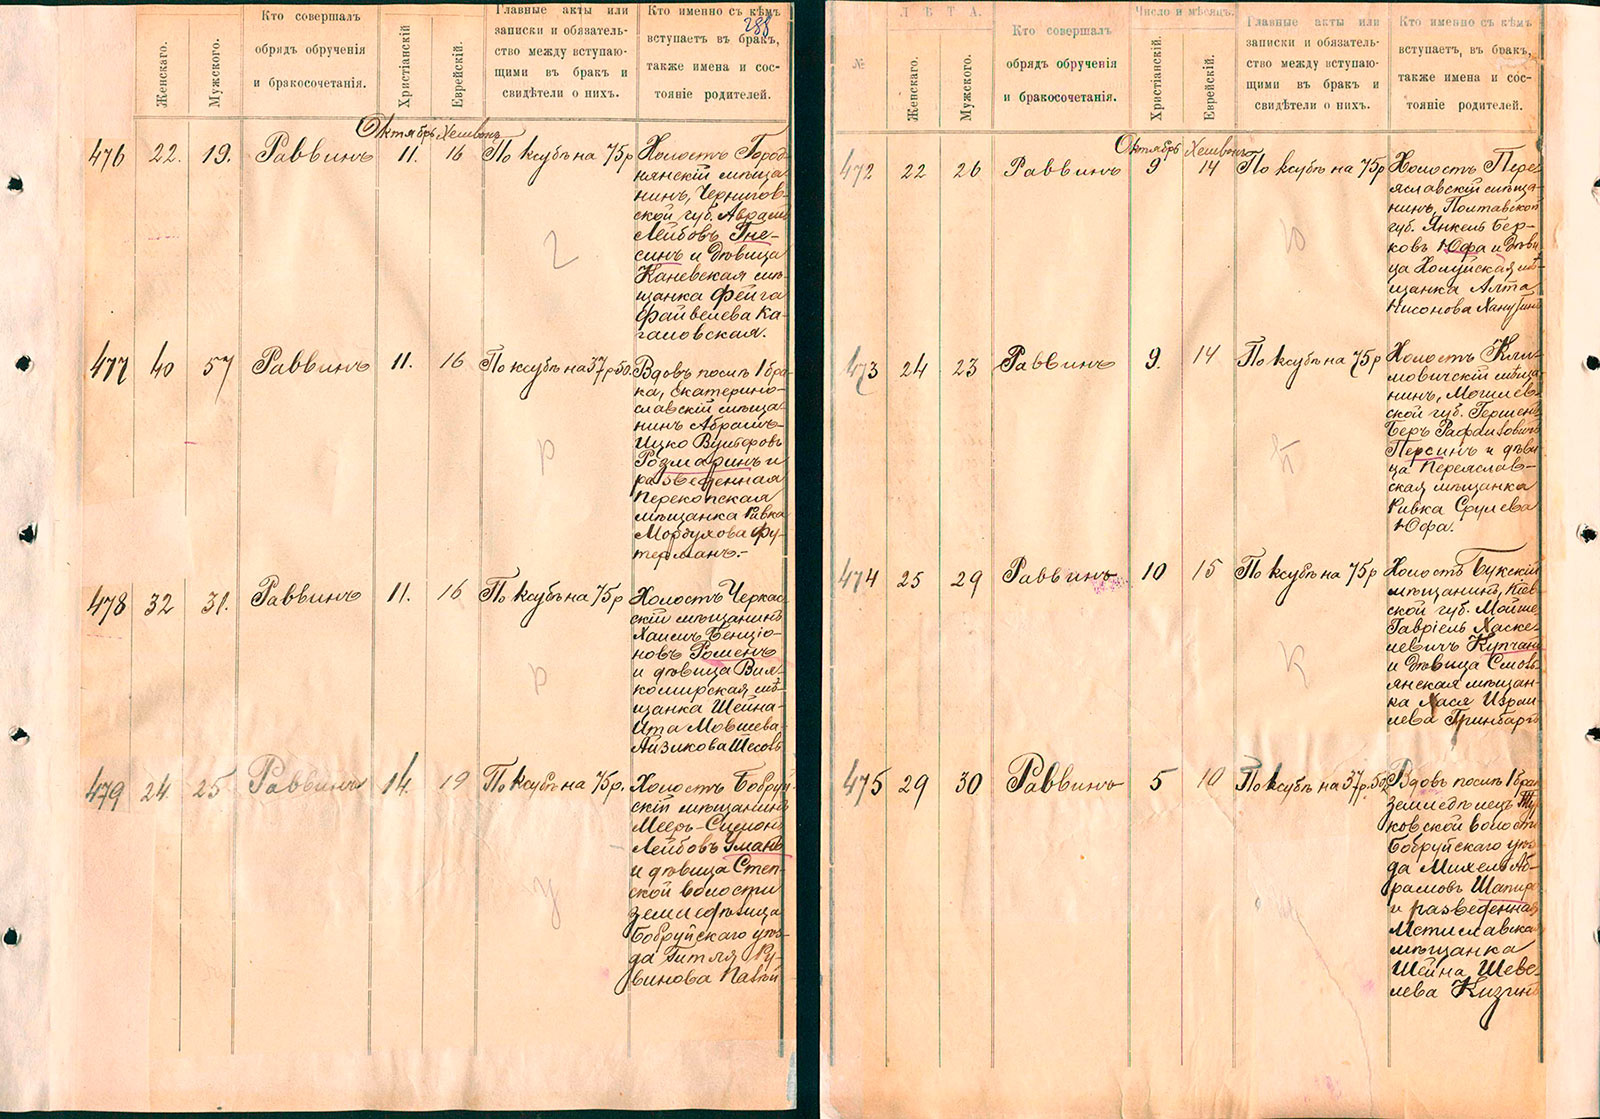 288
Женскаго.
Мужскаго.
Кто совершалъ
обрядъ обрученія
и бракосочетанія.
Христіанскій
Еврейскій.
Главные акты или
записки и обязатель-
ство между вступаю-
щими въ бракъ и
свидѣтели о нихъ.
Кто именно съ кѣмъ
вступаетъ въ бракъ,
также имена и сос-
тояніе родителей.
Октябрь Хешвонъ
476 22. 19. Раввинъ 11. 16 По ксубѣ на 75 р
Холостъ Город-
нянскій мѣща
нинъ, Чернигов-
ской губ. Аврамъ
Лейбовъ Гне-
синъ и дѣвица
Каневская мѣ-
щанка Фейга
Файвелева Ка-
гановская.
477 40 57 Раввинъ 11. 16 По ксубѣ на 37 р 50.
Вдовъ послѣ 1 бра-
ка, Екатерино-
славскій мѣща-
нинъ Абрамъ-
Ицко Вульфовъ
Розмаринъ и
разведенная
Перекопская
мѣщанка Ривка
Мордухова Фу-
терманъ.-
478 32 31. Раввинъ 11. 16 По ксубѣ на 75 р
Холостъ Черкас
скій мѣщанинъ
Хаимъ Бенціо-
новъ Роменъ
и дѣвица Виль-
комирская мѣ-
щанка Шейна-
Ита Мовшева-
Айзикова
479 24 25 Раввинъ 14. 19 По ксубѣ на 75 р.
Холостъ Бобруй
скій мѣщанинъ
Мееръ-Симонъ
Лейбовъ Уманъ
и дѣвица Степ-
ской волости
землевладѣлица
Бобруйскаго уѣз-
да Гитля Ру-
винова
Л Ѣ Т А.
Число и мѣсяцъ.
№
Женскаго.
Мужского.
Кто совершалъ
обрядъ обрученія
и бракосочетанія.
Христіанскій.
Еврейскій.
Главные акты или
записки и обязатель-
ство между вступаю-
щими въ бракъ и
свидѣтели о нихъ.
Кто именно съ кѣмъ
вступаетъ, въ бракъ,
также имена и сос-
тояніе родителей.
Октябрь Хешвонъ
472 22 26 Раввинъ 9 14 По ксубѣ на 75 р
Холостъ Пере
яславскій мѣща-
нинъ, Полтавской
губ. Янкель Бер-
ковъ Юфа и дѣви
ца Холуйская мѣ-
щанка Алта
Нисонова Ханутинъ
473 24 23 Раввинъ 9. 14 По ксубѣ на 75 р
Холостъ Кли-
мовичскій мѣща
нинъ, Могилев-
ской губ. Гершенъ
Беръ Рафаиловичъ
Персинъ и дѣви
ца Переяслав-
ская мѣщанка
Ривка Срулева
Юфа.
474 25 29 Раввинъ 10 15 По ксубѣ на 75 р
Холостъ Букскій
мѣщанинъ, Кіев-
ской губ. Мойше
Гавріель Хаске-
левичъ Купчикъ
и дѣвица Смоль
янская мѣщан-
ка Хася Израи-
лева Гринбаргъ
475 29 30 Раввинъ 5 10 По ксубѣ на 37 р. 50.
Вдовъ послѣ 1 брака
земледѣлецъ
ковской волости
Бобруйскаго уѣз
да Михель Аб-
рамовъ Шапиро
и разведенная
Мстиславская
мѣщанка
Шейна Шеве-
лева